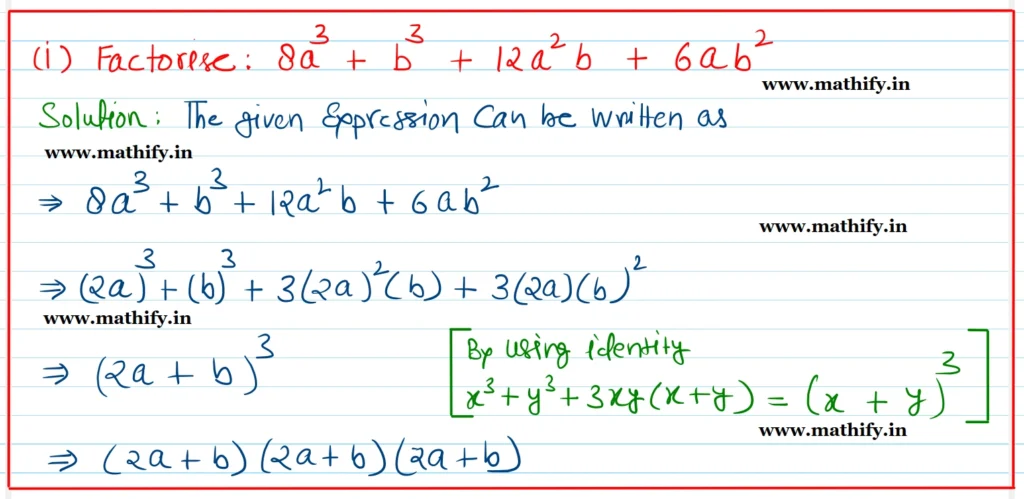 (i) Factorise: 8a³ + b³ + 12a²b + 6ab²
www.mathify.in
Solution: The given Expression Can be written as
www.mathify.in
⇒ 8a³ + b³ + 12a²b + 6ab²
www.mathify.in
⇒ (2a)³ + (b)³ + 3(2a)²(b) + 3(2a)(b)²
www.mathify.in
⇒ (2a + b)³
[By using identity
x³ + y³ + 3xy(x+y) = (x + y)³]
www.mathify.in
⇒ (2a + b)(2a + b)(2a + b)